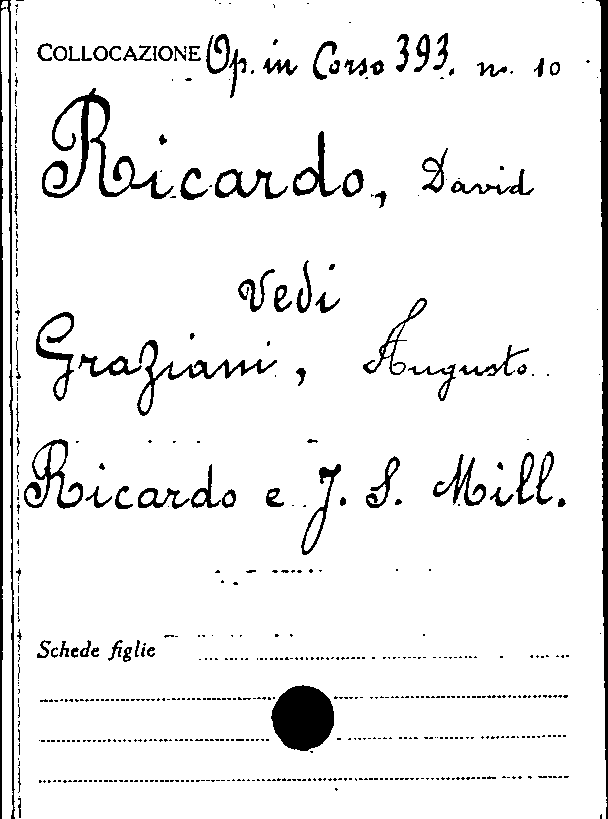 COLLOCAZIONE Op. in Corso 393. n. 10
Ricardo, David
vedi
Graziani, Augusto
Ricardo e J. S. Mill.
Schede figlie